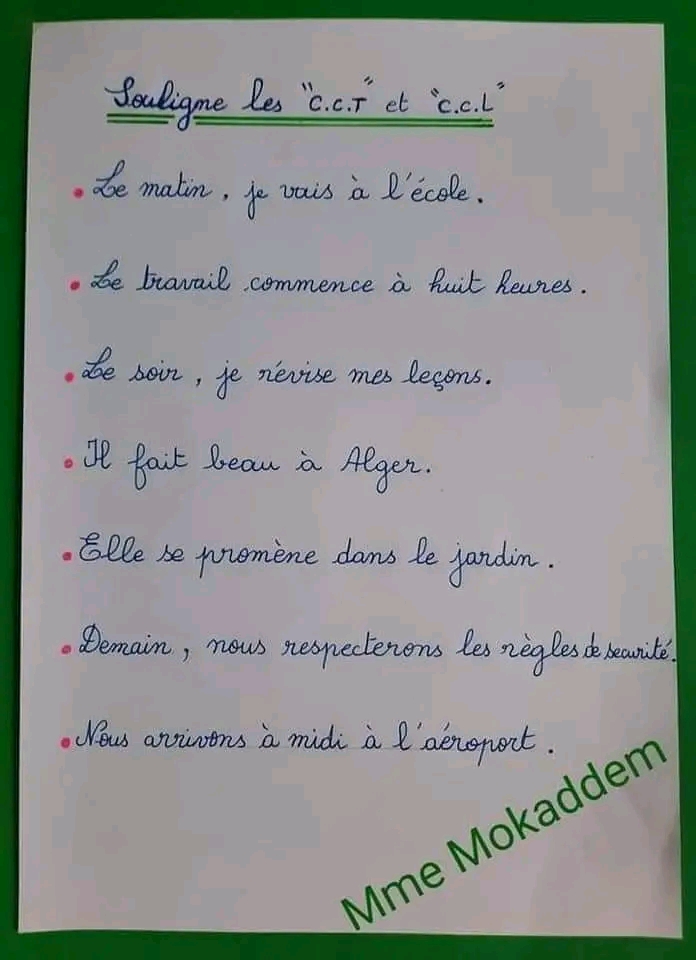 Souligne les "C.C.T" et "C.C.L"
• Le matin, je vais à l'école.
• Le travail commence à huit heures.
• Le soir, je révise mes leçons.
• Il fait beau à Alger.
• Elle se promène dans le jardin.
• Demain, nous respecterons les règles de securité.
• Nous arrivons à midi à l'aéroport.
Mme Mokaddem